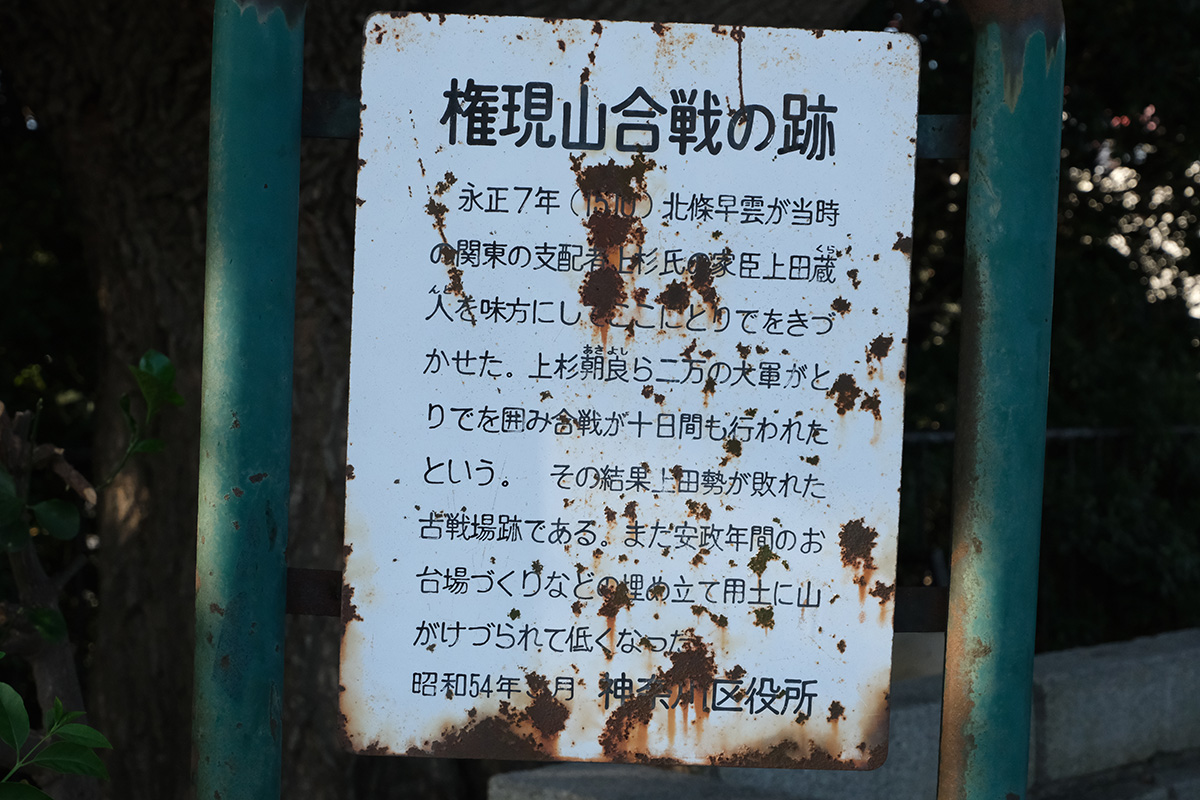 権現山合戦の跡
永正7年（1510）北條早雲が当時
の関東の支配者上杉氏の家臣上田蔵
くら
人を味方にしてここにとりでをきづ
んど
かせた。上杉朝良ら二万の大軍がと
あさよし
りでを囲み合戦が十日間も行われた
という。 その結果上田勢が敗れた
古戦場跡である。まだ安政年間のお
台場づくりなどの埋め立て用土に山
がけづられて低くなった
昭和54年 月 神奈川区役所